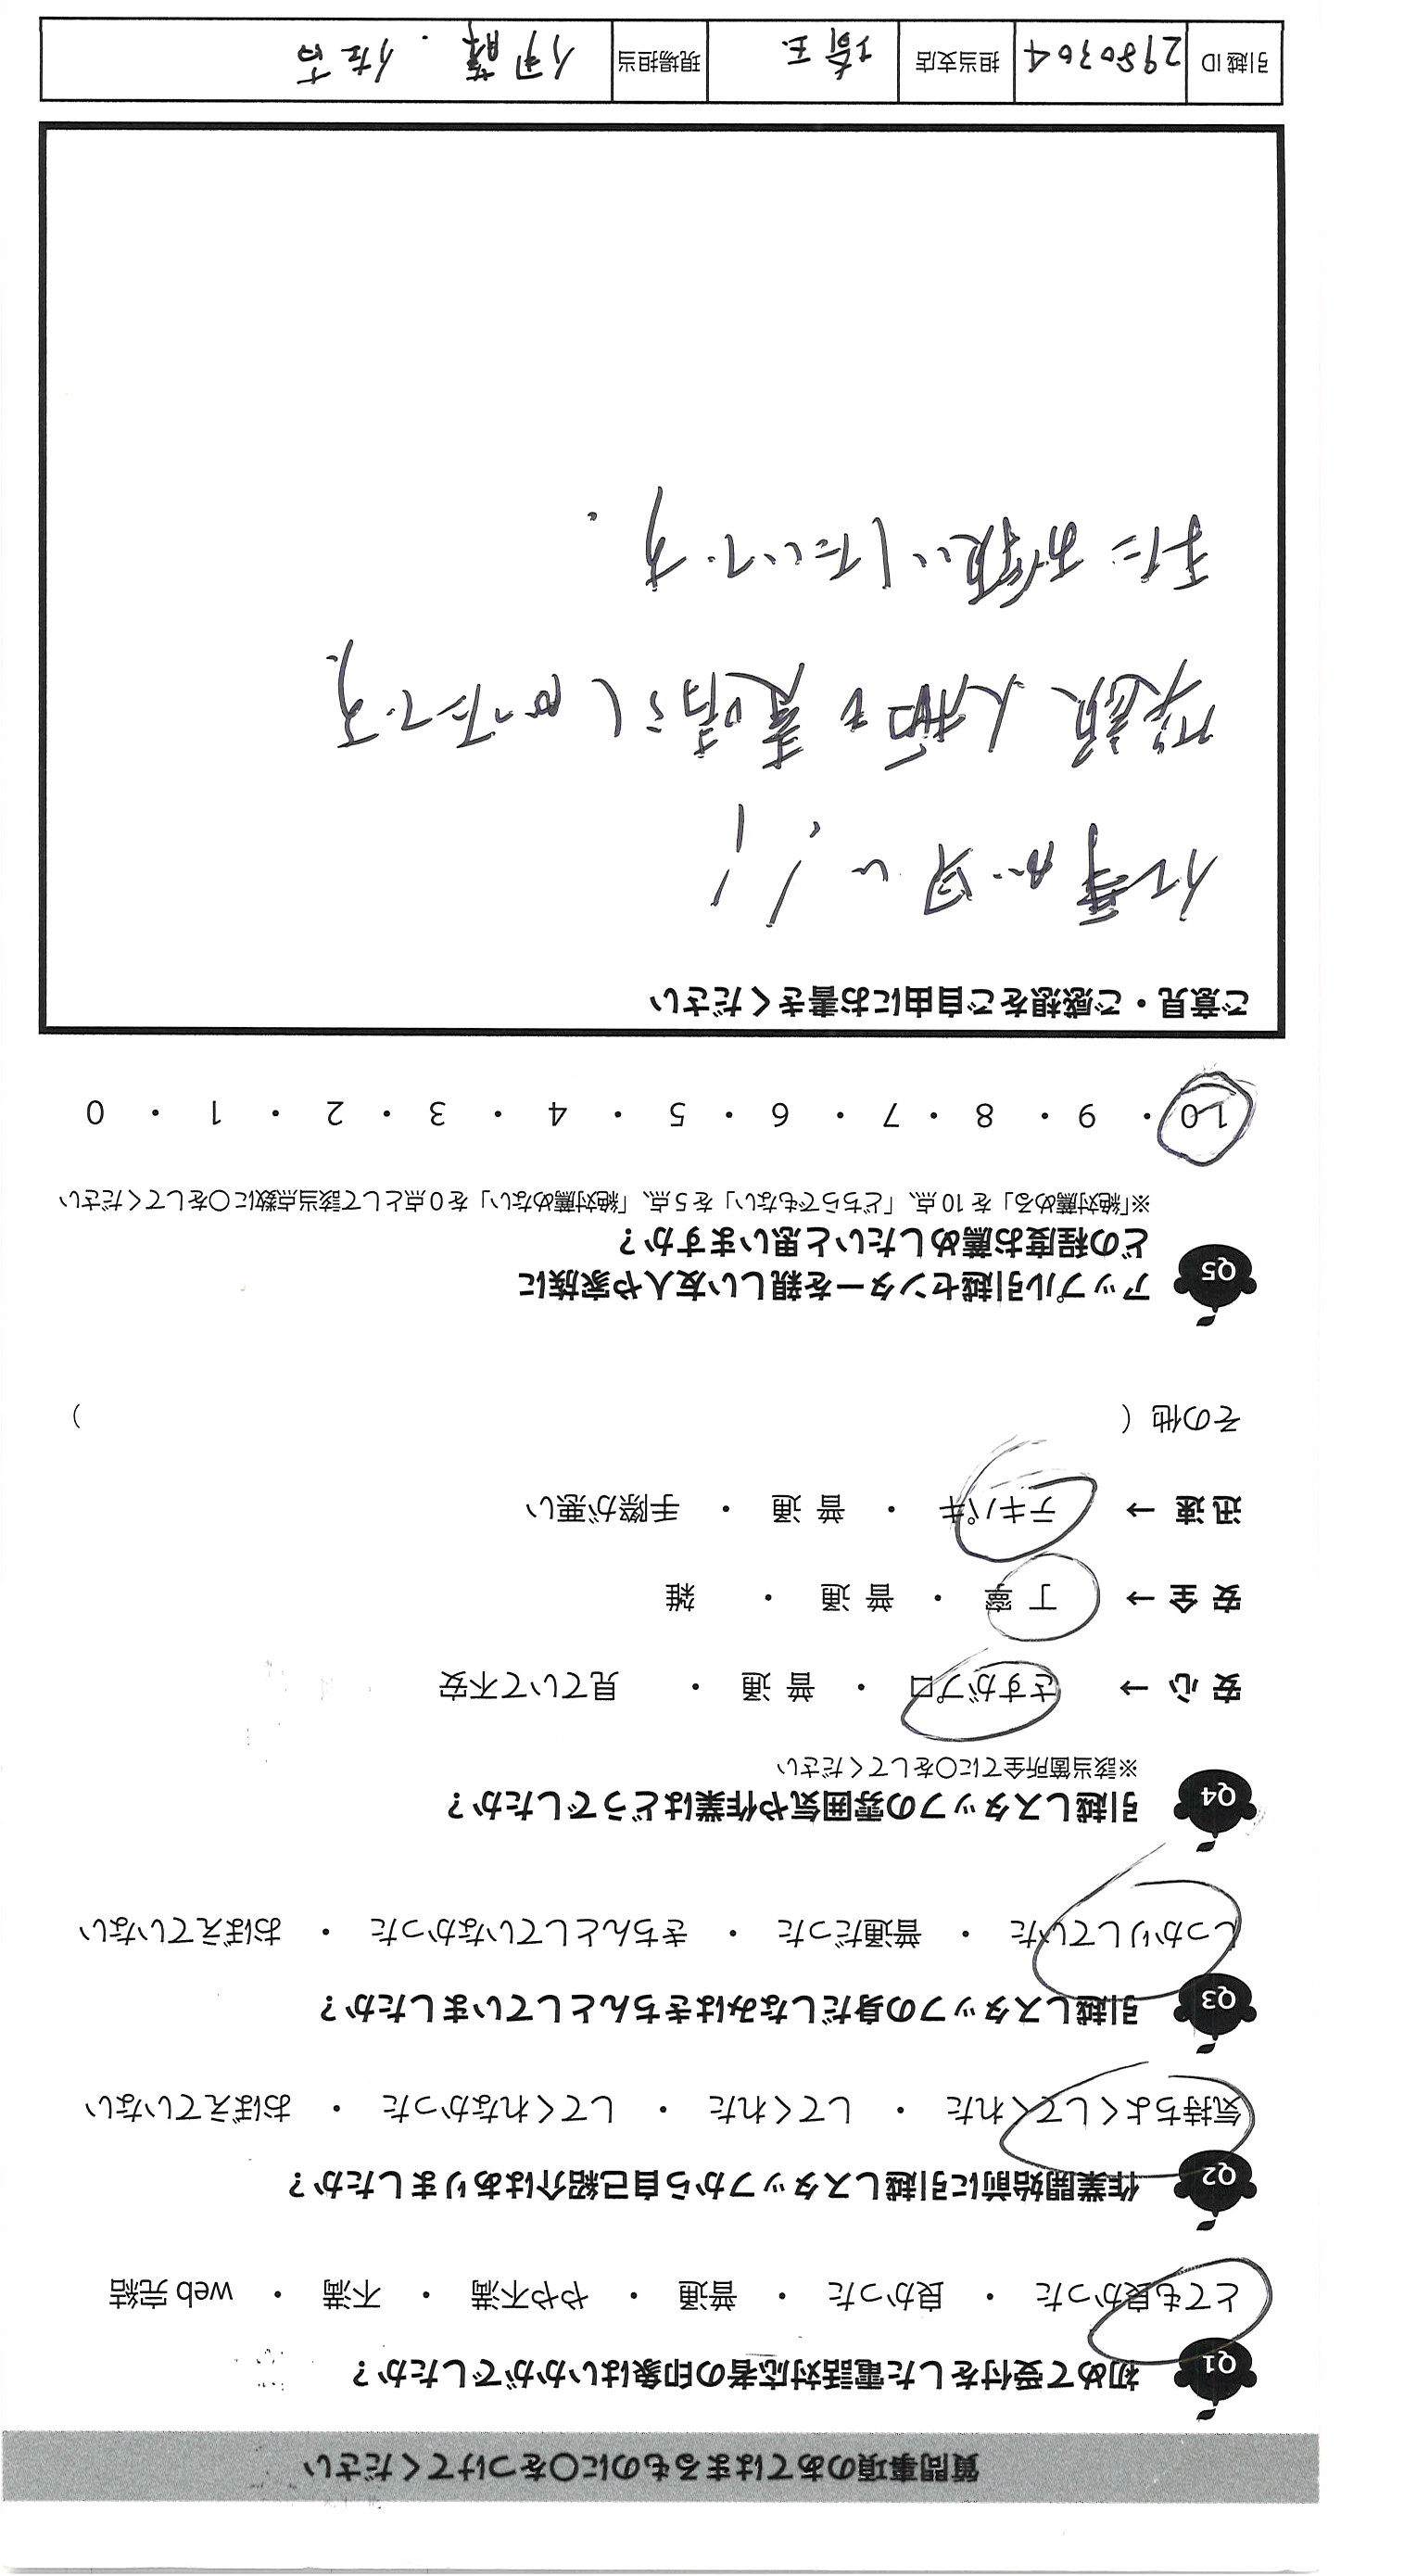 質問事項のあてはまるものに〇をつけてください
Q1 初めて受付をした電話対応者の印象はいかがでしたか？
とても良かった ・ 良かった ・ 普通 ・ やや不満 ・ 不満 ・ web 完結
Q2 作業開始前に引越しスタッフから自己紹介はありましたか？
気持ちよくしてくれた ・ してくれた ・ してくれなかった ・ おぼえていない
Q3 引越しスタッフの身だしなみはきちんとしていましたか？
しっかりしていた ・ 普通だった ・ きちんとしていなかった ・ おぼえていない
Q4 引越しスタッフの雰囲気や作業はどうでしたか？
※該当箇所全てに〇をしてください
安 心 → さすがプロ ・ 普 通 ・ 見ていて不安
安 全 → 丁 寧 ・ 普 通 ・ 雑
迅 速 → テキパキ ・ 普 通 ・ 手際が悪い
その他 （ ）
Q5 アップル引越センターを親しい友人や家族に
どの程度お薦めしたいと思いますか？
※「絶対薦める」を 10 点、「どちらでもない」を 5 点、「絶対薦めない」を 0 点として該当点数に〇をしてください
10 ・ 9 ・ 8 ・ 7 ・ 6 ・ 5 ・ 4 ・ 3 ・ 2 ・ 1 ・ 0
ご意見・ご感想をご自由にお書きください
仕事が早い!!
笑顔 人柄も素晴らしかったです。
またお願いしたいです。
引越 ID 2980304 担当支店 埼玉 現場担当 伊藤 ・ 佐